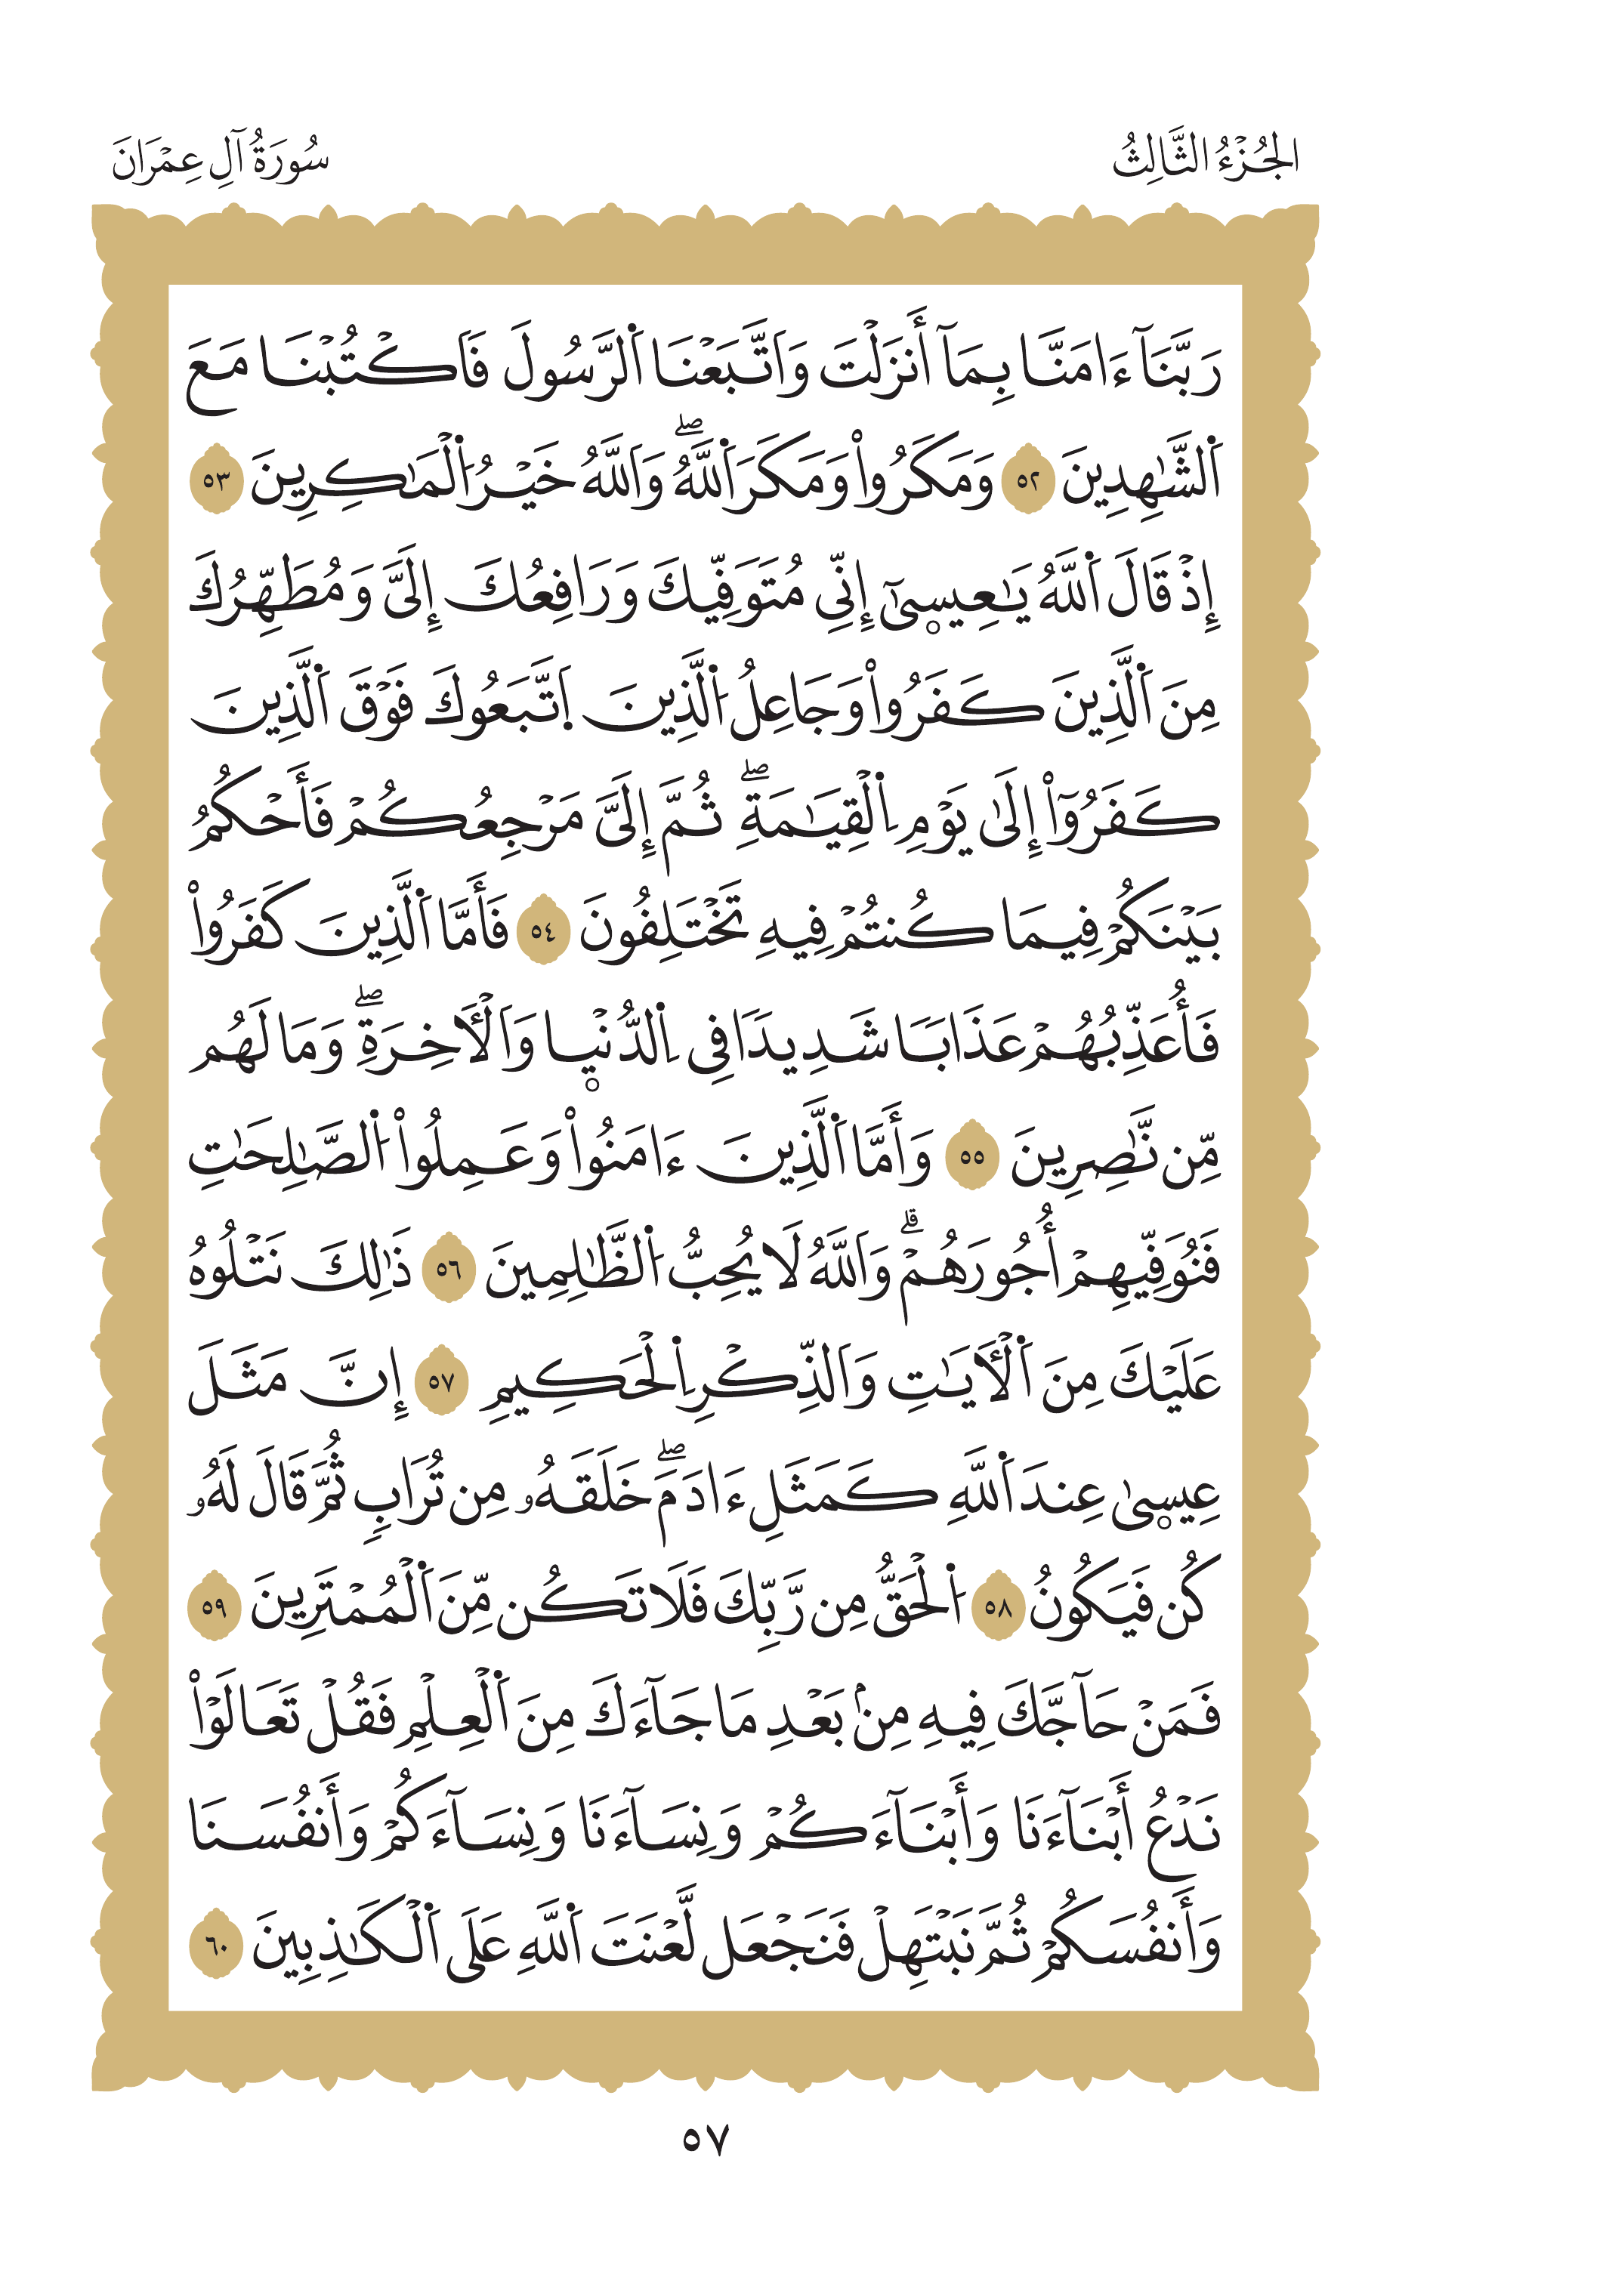 الجُزْءُ الثَّالِثُ
سُورَةُ آلِ عِمْرَانَ
رَبَّنَآ ءَامَنَّا بِمَآ أَنزَلْتَ وَاَتَّبَعْنَا اَ۬لرَّسُولَ فَاَكْتُبْنَا مَعَ
اَ۬لشَّٰهِدِينَ ٥٢ وَمَكَرُواْ وَمَكَرَ اَ۬للَّهُۖ وَاَللَّهُ خَيْرُ اُ۬لْمَٰكِرِينَ ٥٣
إِذْ قَالَ اَ۬للَّهُ يَٰعِيس۪ىٰٓ إِنِّى مُتَوَفِّيكَ وَرَافِعُكَ إِلَىَّ وَمُطَهِّرُكَ
مِنَ اَ۬لَّذِينَ كَفَرُواْ وَجَاعِلُ اُ۬لَّذِينَ اَ۪تَّبَعُوكَ فَوْقَ اَ۬لَّذِينَ
كَفَرُوٓاْ إِلَىٰ يَوْمِ اِ۬لْقِيَٰمَةِۖ ثُمَّ إِلَىَّ مَرْجِعُكُمْ فَأَحْكُمُ
بَيْنَكُمْ فِيمَا كُنتُمْ فِيهِ تَخْتَلِفُونَ ٥٤ فَأَمَّا اَ۬لَّذِينَ كَفَرُواْ
فَأُعَذِّبُهُمْ عَذَابَٗا شَدِيدَٗا فِى اِ۬لدُّنْي۪ا وَاَلْأَخِرَةِۖ وَمَا لَهُم
مِّن نَّٰصِرِينَ ٥٥ وَأَمَّا اَ۬لَّذِينَ ءَامَنُواْ وَعَمِلُواْ اُ۬لصَّٰلِحَٰتِ
فَنُوَفِّيهِمْ أُجُورَهُمْۗ وَاَللَّهُ لَا يُحِبُّ اُ۬لظَّٰلِمِينَ ٥٦ ذَٰلِكَ نَتْلُوهُ
عَلَيْكَ مِنَ اَ۬لْأَيَٰتِ وَاَلذِّكْرِ اِ۬لْحَكِيمِ ٥٧ إِنَّ مَثَلَ
عِيس۪ىٰ عِندَ اَ۬للَّهِ كَمَثَلِ ءَادَمَۖ خَلَقَهُۥ مِن تُرَابٖ ثُمَّ قَالَ لَهُۥ
كُن فَيَكُونُ ٥٨ اُ۬لْحَقُّ مِن رَّبِّكَ فَلَا تَكُن مِّنَ اَ۬لْمُمْتَرِينَ ٥٩
فَمَنْ حَآجَّكَ فِيهِ مِنۢ بَعْدِ مَا جَآءَكَ مِنَ اَ۬لْعِلْمِ فَقُلْ تَعَالَوْاْ
نَدْعُ أَبْنَآءَنَا وَأَبْنَآءَكُمْ وَنِسَآءَنَا وَنِسَآءَكُمْ وَأَنفُسَنَا
وَأَنفُسَكُمْ ثُمَّ نَبْتَهِلْ فَنَجْعَل لَّعْنَتَ اَ۬للَّهِ عَلَى اَ۬لْكَٰذِبِينَ ٦٠
٥٧